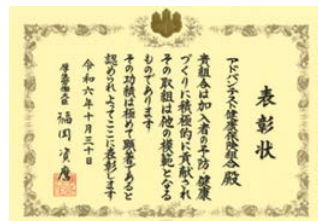 表彰状
アドバンテスト健康保険組合殿
貴組合は加入者の予防健康
づくりに積極的に貢献され
その取組は他の模範となる
ものであります
その功績は極めて顕著であると
認められよってここに表彰します
令和六年十月三十日
厚生労働大臣 福岡資麿